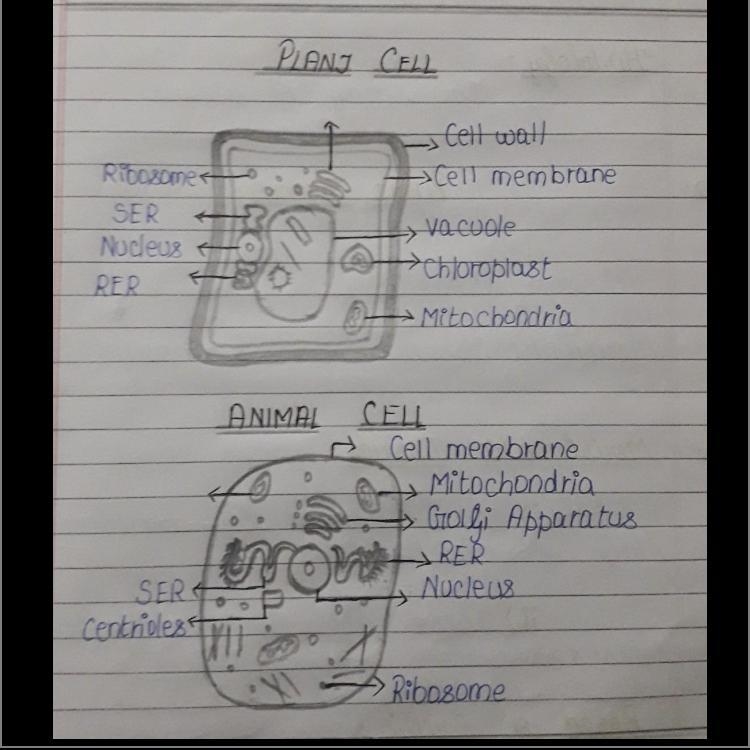 PLANT CELL
Cell wall
Ribosome
Cell membrane
SER
Vacuole
Nucleus
Chloroplast
RER
Mitochondria
ANIMAL CELL
Cell membrane
Mitochondria
Golgi Apparatus
RER
SER
Nucleus
Centrioles
Ribosome